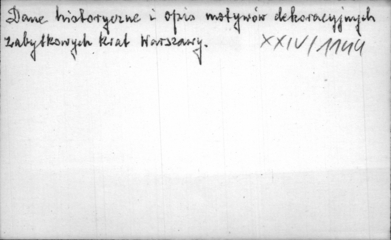 Dane historyczne i opis motywów dekoracyjnych
zabytkowych krat Warszawy.
XXIV/1144